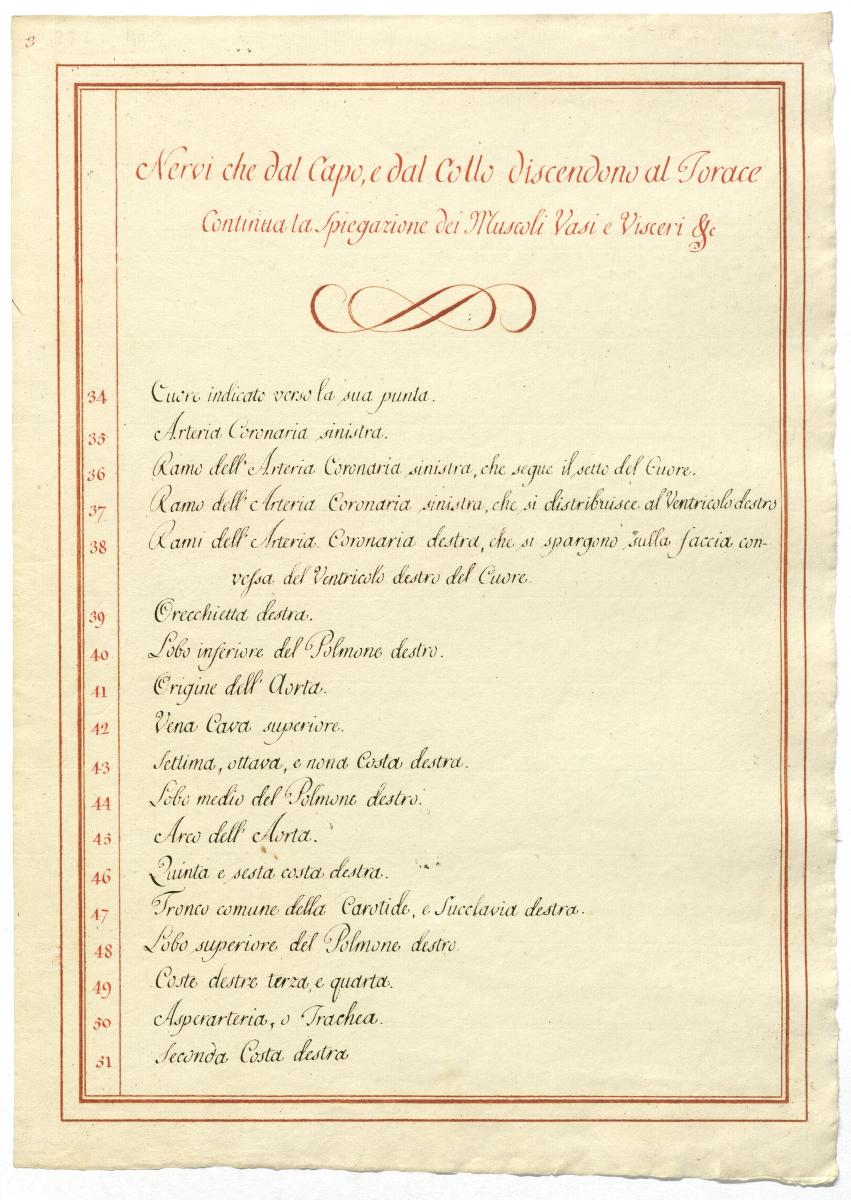 3
Nervi che dal Capo, e dal Collo discendono al Torace
Continua la Spiegazione dei Muscoli Vasi e Visceri &c
34 Cuore indicato verso la sua punta.
35 Arteria Coronaria sinistra.
36 Ramo dell'Arteria Coronaria sinistra, che segue il setto del Cuore.
37 Ramo dell'Arteria Coronaria sinistra, che si distribuisce al Ventricolo destro
38 Rami dell'Arteria Coronaria destra, che si spargono sulla faccia con-
vessa del Ventricolo destro del Cuore
39 Orecchietta destra.
40 Lobo inferiore del Polmone destro.
41 Origine dell'Aorta.
42 Vena Cava superiore.
43 Settima, ottava, e nona Costa destra.
44 Lobo medio del Polmone destro.
45 Arco dell'Aorta.
46 Quinta e sesta costa destra.
47 Tronco comune della Carotide, e Succlavia destra.
48 Lobo superiore del Polmone destro.
49 Coste destre terza, e quarta.
50 Asperarteria, o Trachea.
51 Seconda Costa destra